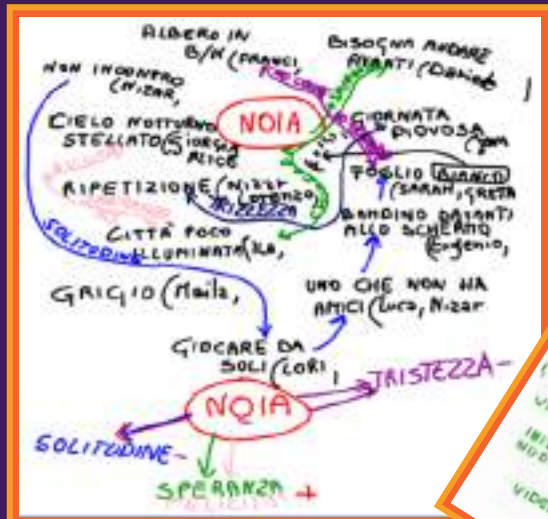 ALBERO IN
B/N (FRANCI,
BISOGNA ANDARE
AVANTI (Davide
NON INCONTRO
(NIZAR,
CIELO NOTTURNO
STELLATO (GIORGIA
ALICE
NOIA
GIORNATA
PIOVOSA
FOGLIO BIANCO
(SARAH, GRETA
RIPETIZIONE (Nizar
Lorenzo,
TRISTEZZA
BAMBINO DAVANTI
ALLO SCHERMO
(Eugenio,
SOLITUDINE
CITTÀ POCO
ILLUMINATA (ILA,
GRIGIO (Maila,
UNO CHE NON HA
AMICI (Luca, Nizar
GIOCARE DA
SOLI (LORI,
NOIA
TRISTEZZA -
SOLITUDINE -
SPERANZA +